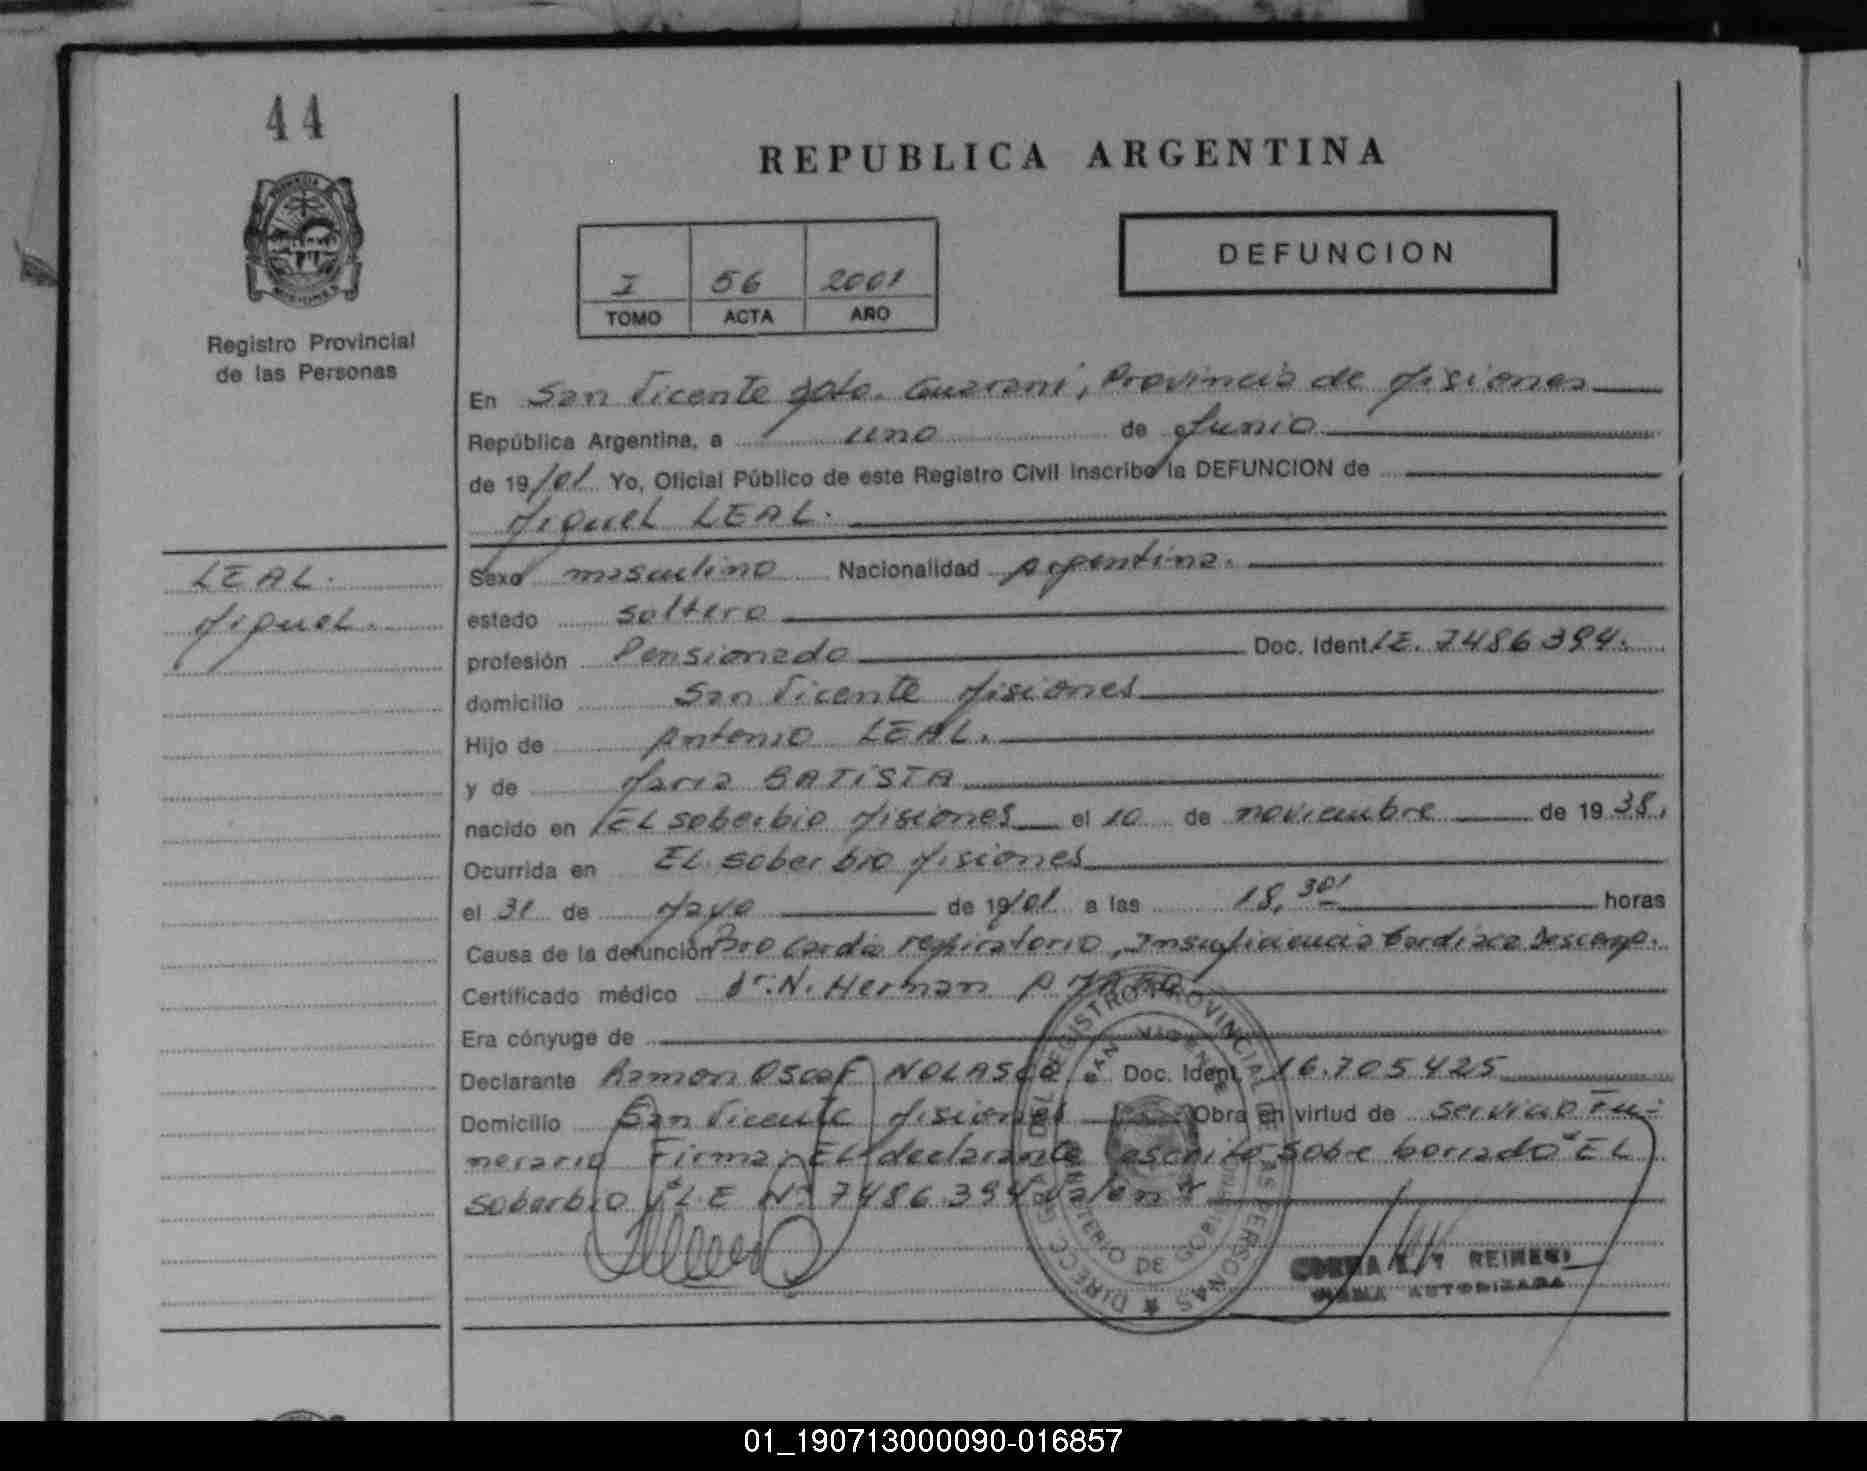 44
REPUBLICA ARGENTINA
DEFUNCION
I 56 2001
TOMO ACTA AÑO
Registro Provincial
de las Personas
En San Vicente Dpto. Guaraní, Provincia de Misiones
República Argentina, a uno de Junio
de 19/01 Yo, Oficial Público de este Registro Civil inscribo la DEFUNCION de
Miguel LEAL.
LEAL.
Miguel.
Sexo masculino Nacionalidad Argentina.
estado soltero
profesión Pensionado Doc. Ident. LE. 7486394.
domicilio San Vicente Misiones
Hijo de Antonio LEAL.
y de Maria BATISTA
nacido en EL soberbio Misiones el 10 de noviembre de 1938.
Ocurrida en EL soberbio Misiones
el 31 de Mayo de 19/01 a las 18,30' horas
Causa de la defunción Paro Cardio respiratorio, Insuficiencia Cardiaca Descomp.
Certificado médico dr. N. Herman
Era cónyuge de
Declarante Ramon Oscar NOLASCO Doc. Ident. 16.705425
Domicilio San Vicente Misiones Obra en virtud de servicio Fu-
nerario Firma: EL declarante escrito sobre borrado "EL
soberbio y "L.E Nº 7486.394 valen"
DIRECC. GRAL. DEL REGISTRO PROVINCIAL DE LAS PERSONAS
SAN VICENTE
MINISTERIO DE GOBIERNO
FIRMA AUTORIZADA
01_190713000090-016857